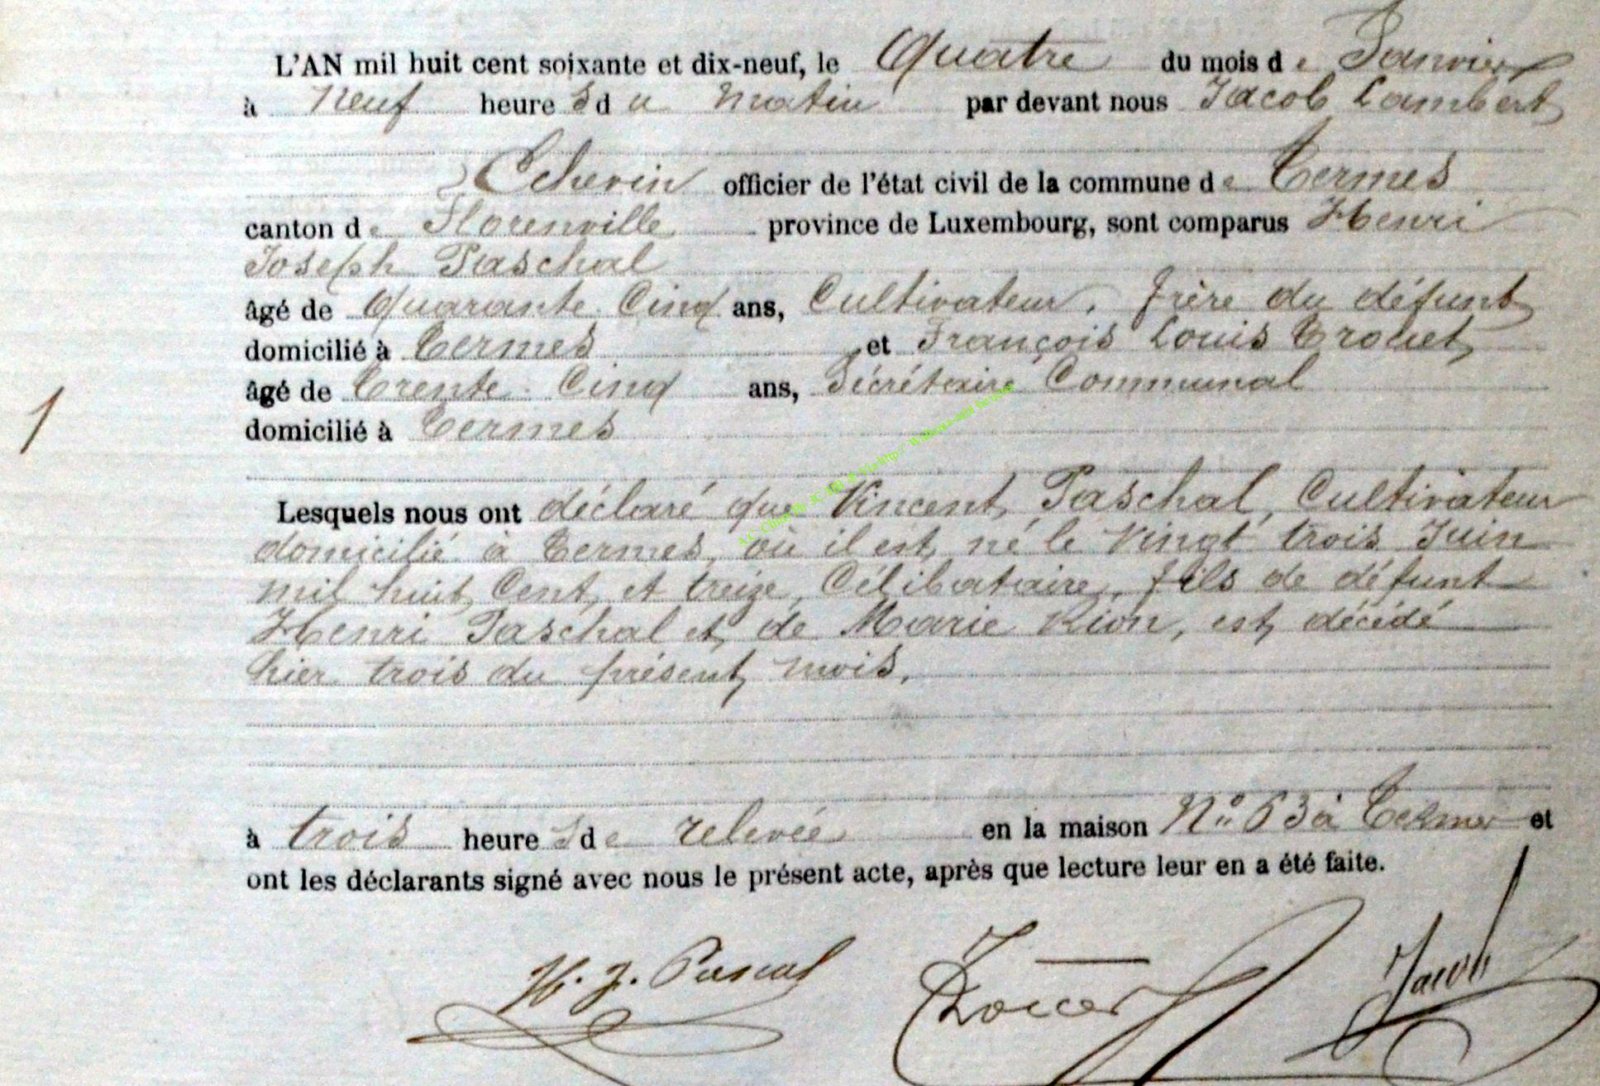 L'AN mil huit cent soixante et dix-neuf, le Quatre du mois de Janvier
à Neuf heures du matin par devant nous Jacob Lambert
Echevin officier de l'état civil de la commune de Termes
canton de Florenville province de Luxembourg, sont comparus Henri
Joseph Paschal
âgé de Quarante Cinq ans, Cultivateur, frère du défunt
domicilié à Termes et François Louis Trouet
âgé de Trente Cinq ans, Sécrétaire Communal
domicilié à Termes
1
Lesquels nous ont déclaré que Vincent Paschal, Cultivateur
domicilié à Termes, où il est né le Vingt trois Juin
mil huit Cent et treize, Célibataire, fils de défunt
Henri Paschal et de Marie Rion, est décédé
hier trois du présent mois,
à trois heures de relevée en la maison N° 63 à Termes et
ont les déclarants signé avec nous le présent acte, après que lecture leur en a été faite.
H. J. Pascal Jacob